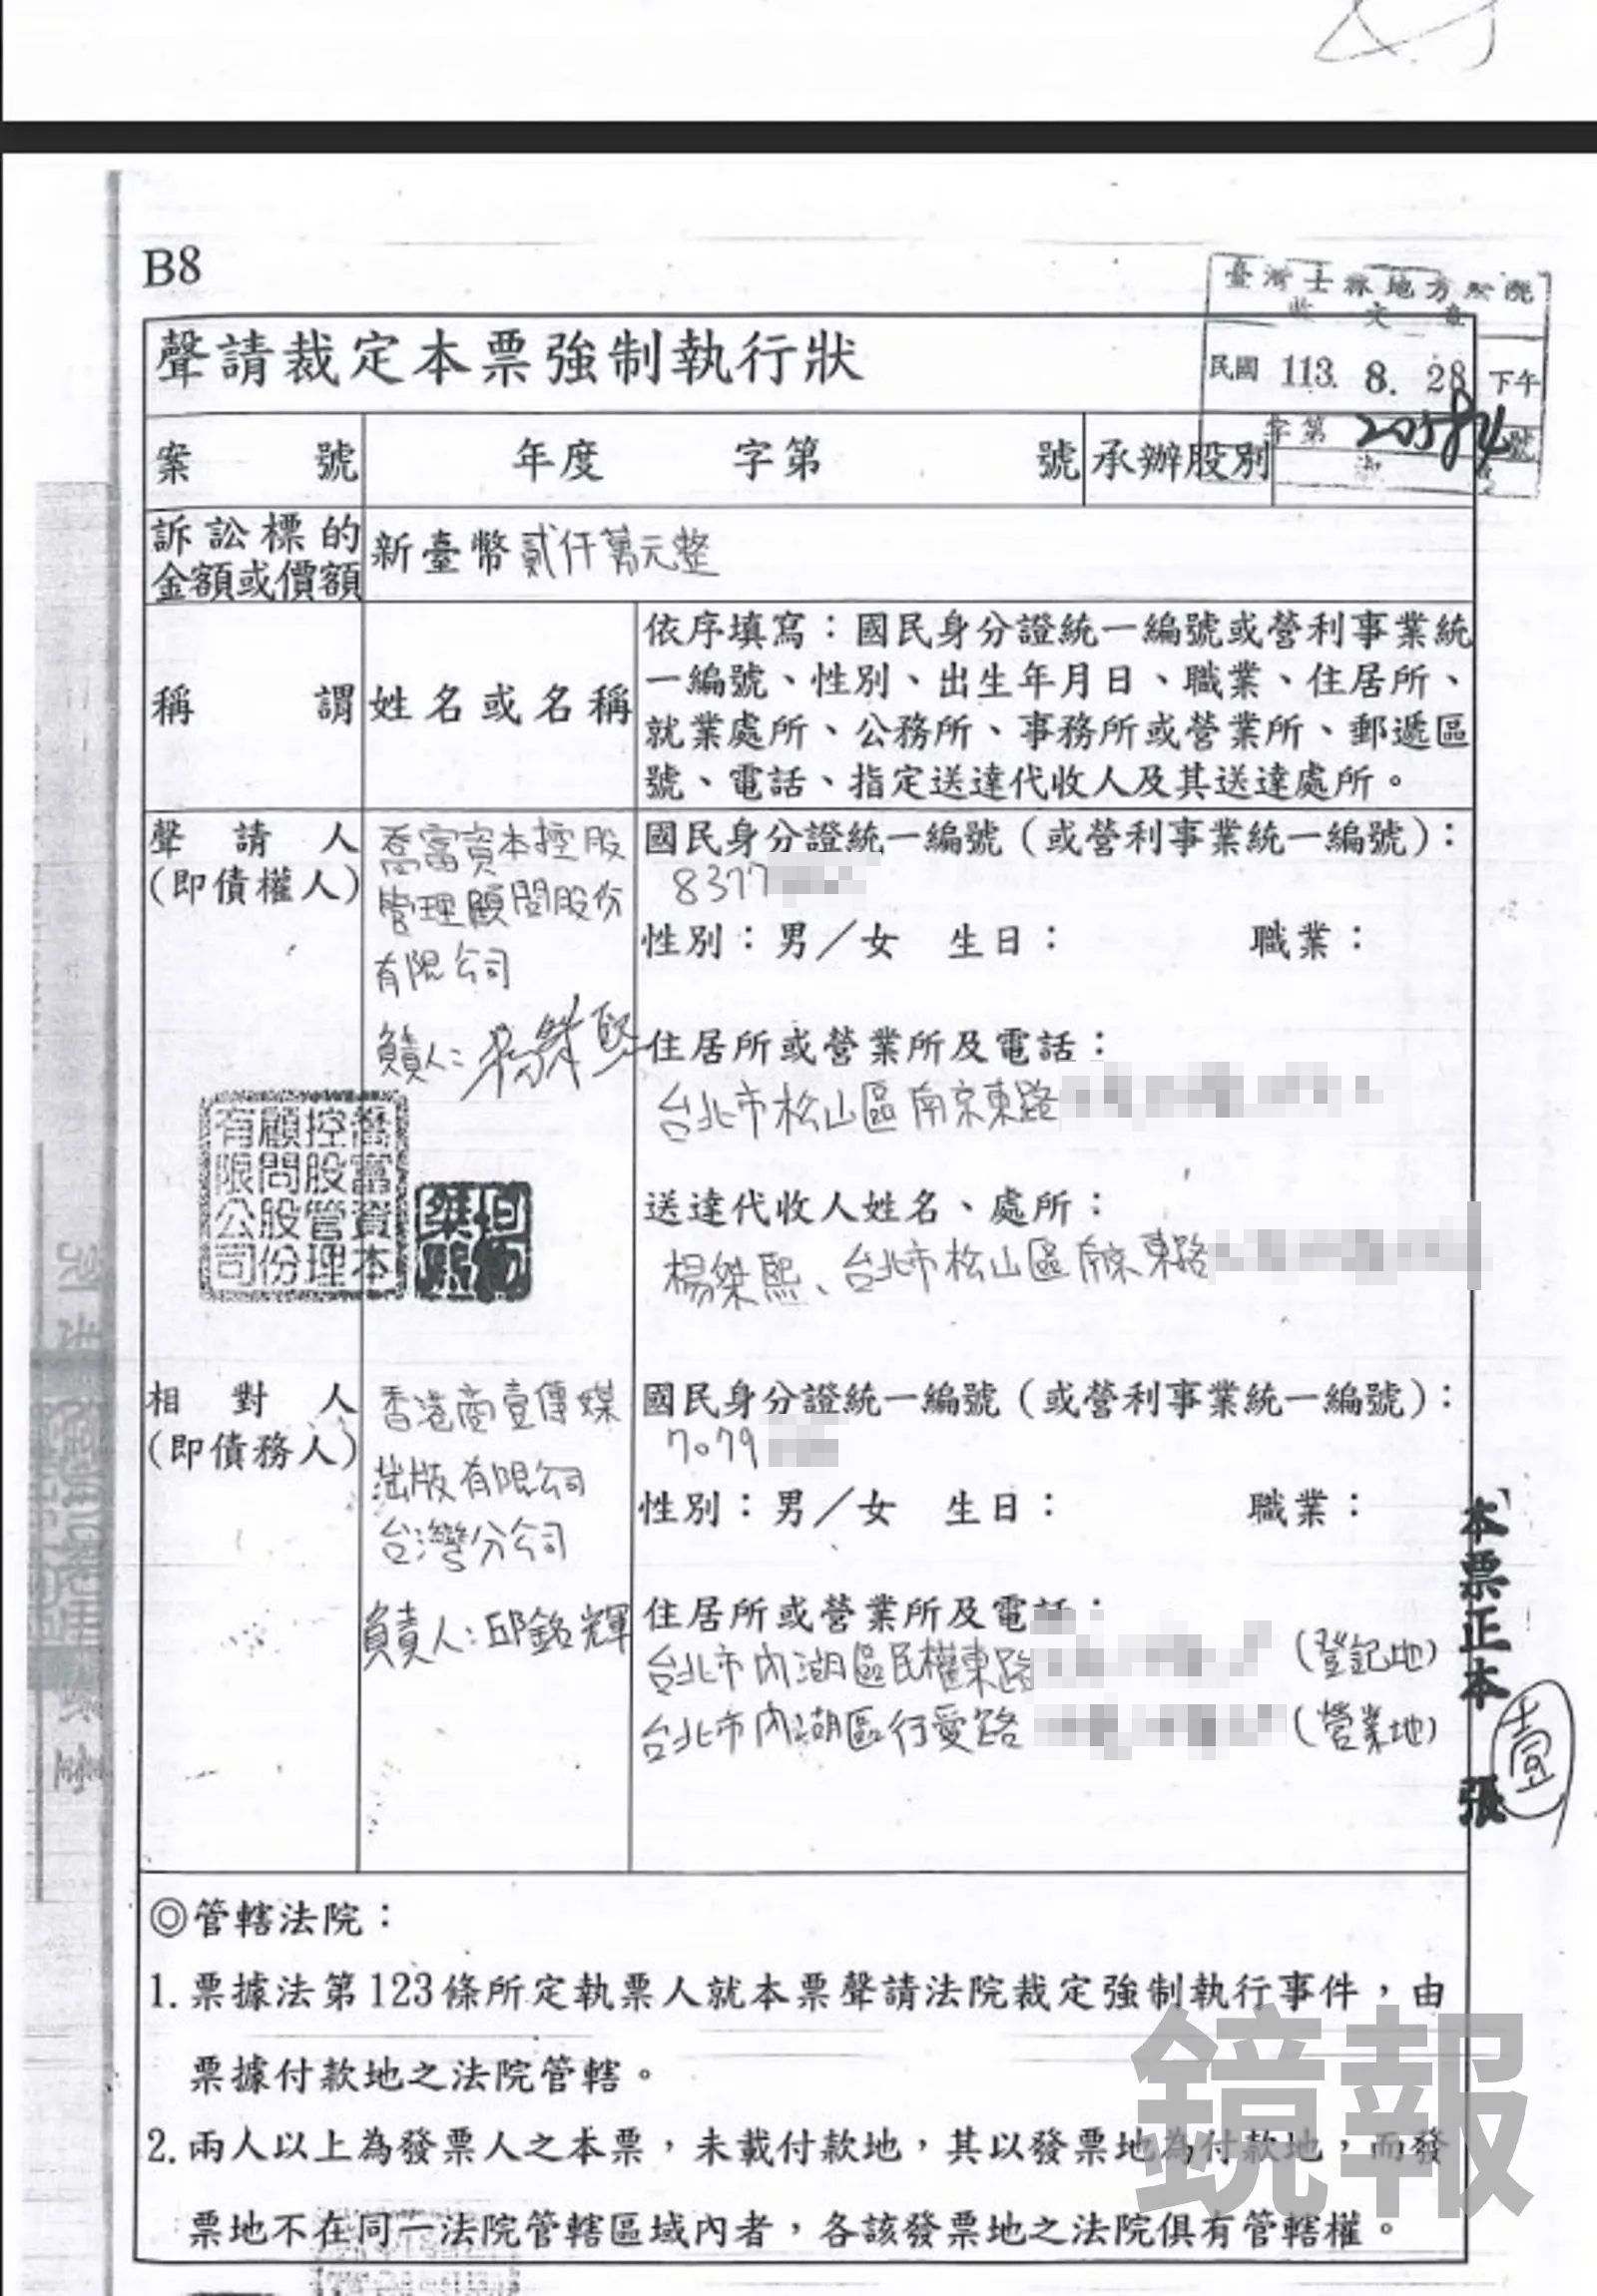 B8
臺灣士林地方法院
收文章
民國 113. 8. 28 下午
字第 號
聲請裁定本票強制執行狀
案 號 年度 字第 號 承辦股別
訴訟標的
金額或價額
新臺幣貳仟萬元整
稱 謂
姓名或名稱
依序填寫：國民身分證統一編號或營利事業統
一編號、性別、出生年月日、職業、住居所、
就業處所、公務所、事務所或營業所、郵遞區
號、電話、指定送達代收人及其送達處所。
聲 請 人
(即債權人)
喬富資本控股
管理顧問股份
有限公司
負責人：楊傑熙
國民身分證統一編號（或營利事業統一編號）：
8377
性別：男／女 生日： 職業：
住居所或營業所及電話：
台北市松山區南京東路
送達代收人姓名、處所：
楊傑熙、台北市松山區南京東路
喬富資本
控股管理
顧問股份
有限公司
相 對 人
(即債務人)
香港商壹傳媒
出版有限公司
台灣分公司
負責人：邱銘輝
國民身分證統一編號（或營利事業統一編號）：
7079
性別：男／女 生日： 職業：
住居所或營業所及電話：
台北市內湖區民權東路 (登記地)
台北市內湖區行愛路 (營業地)
本票正本 壹 張
◎管轄法院：
1. 票據法第123條所定執票人就本票聲請法院裁定強制執行事件，由
票據付款地之法院管轄。
2. 兩人以上為發票人之本票，未載付款地，其以發票地為付款地，而發
票地不在同一法院管轄區域內者，各該發票地之法院俱有管轄權。
鏡報